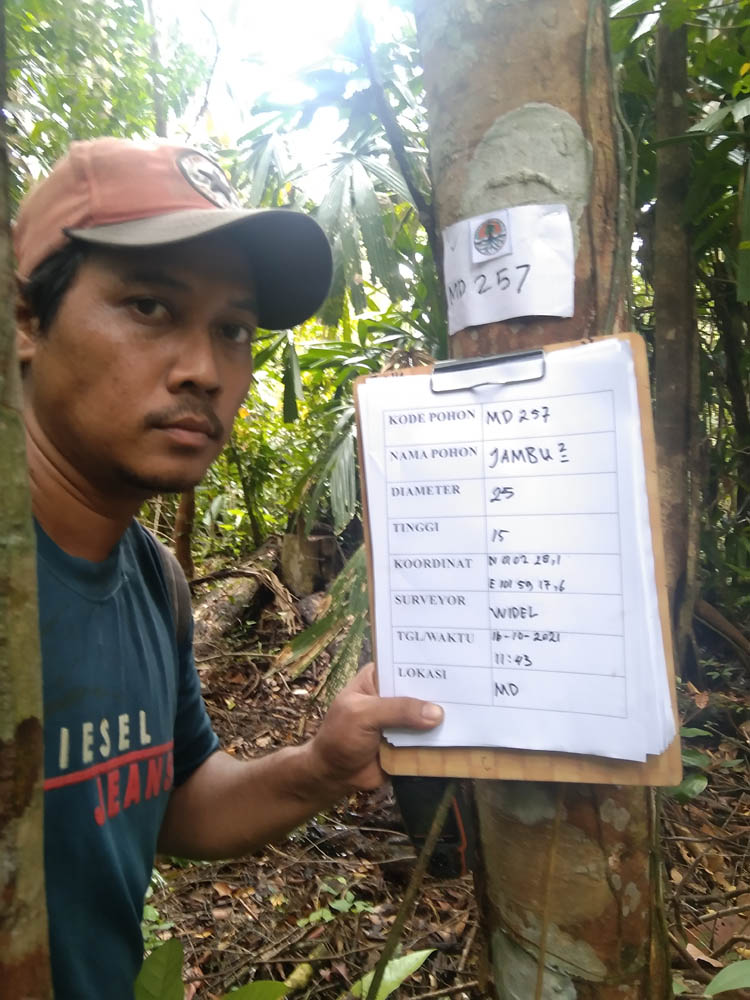 MD 257
KODE POHON MD 257
NAMA POHON JAMBU 2
DIAMETER 25
TINGGI 15
KOORDINAT N 01 02 28,1
E 101 59 17,6
SURVEYOR WIDEL
TGL/WAKTU 16-10-2021
11:43
LOKASI MD
IESEL
JEANS